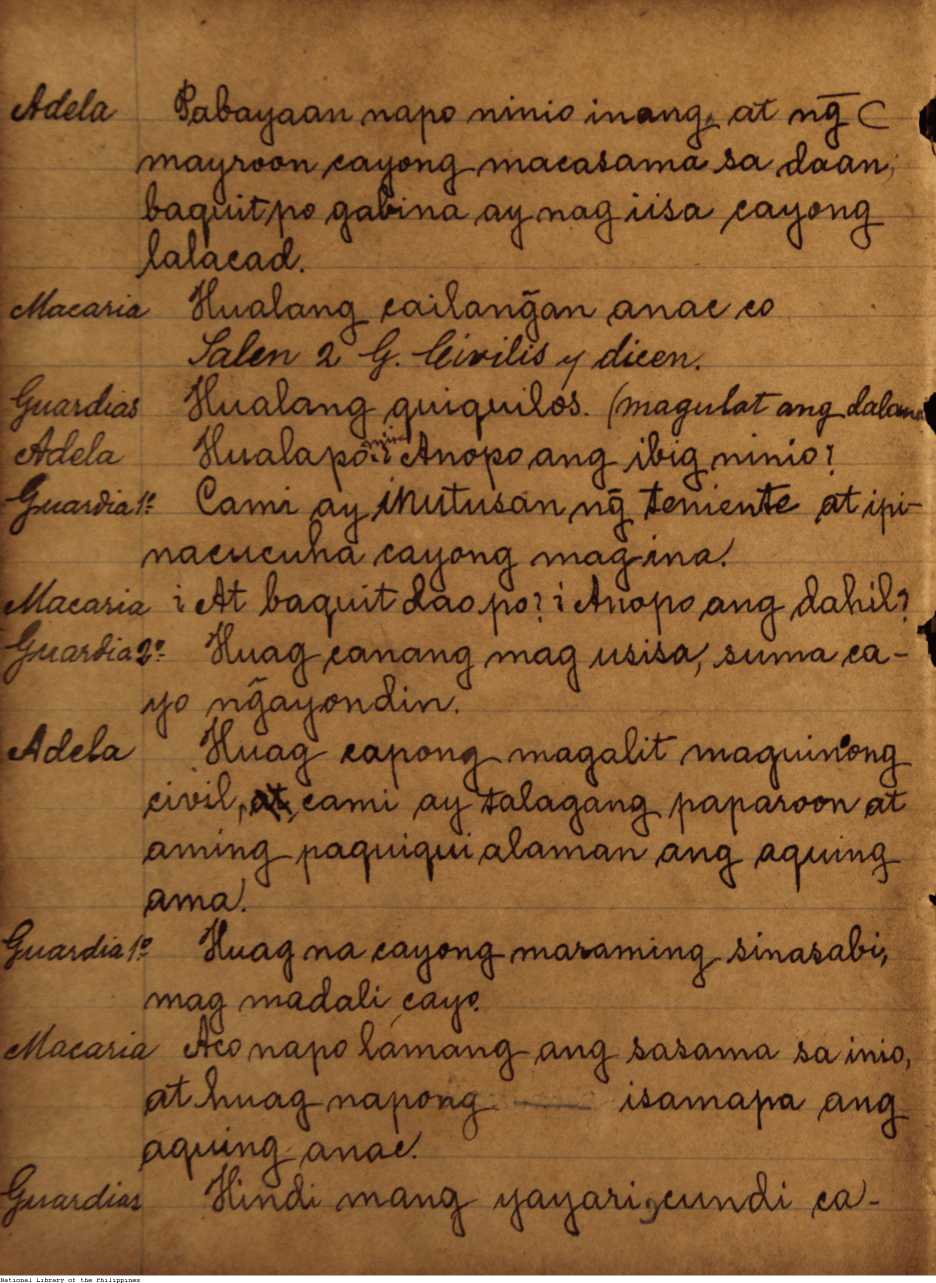 Adela Pabayaan napo ninio inang, at ng̃
mayroon cayong macasama sa daan,
baquit po gabina ay nag iisa cayong
lalacad.
Macaria Hualang cailang̃an anac co
Salen 2 G. Civilis y dicen.
Guardias Hualang quiquilos. (magulat ang dalaua
Adela Hualapo. ¿Anopo ang ibig ninio?
Guardia 1º Cami ay inutusan ng̃ teniente at ipi-
nacucuha cayong mag ina.
Macaria ¿At baquit dao po? ¿Anopo ang dahil?
Guardia 2º Huag canang mag usisa, suma ca-
yo ng̃ayondin.
Adela Huag capong magalit maguinoong
civil, at, cami ay talagang paparoon at
aming paquiquialaman ang aquing
ama.
Guardia 1º Huag na cayong maraming sinasabi,
mag madali cayo.
Macaria Aco napo lamang ang sasama sa inio,
at huag napong isamapa ang
aquing anac.
Guardias Hindi mang yayari, cundi ca-
National Library of the Philippines